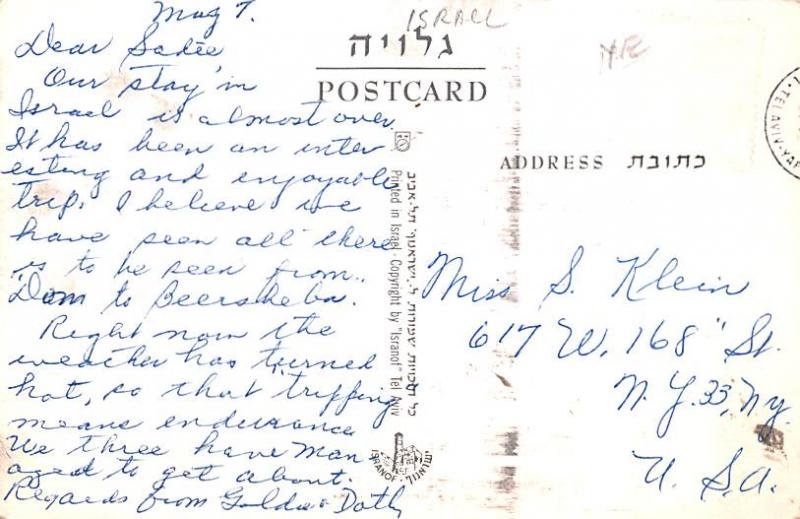 May 7.
Dear Sadie
Our stay in
Israel is almost over.
It has been an inter
esting and enjoyable
trip. I believe we
have seen all there
is to be seen from
"Dan to Beersheba.
Right now the
weather has turned
hot, so that tripping
means endurance
We three have Man
aged to get about.
Regards from Goldie & Doth
ISRAEL
גלויה
POSTCARD
ADDRESS כתובת
TEL AVIV-YAF
Printed in Israel - Copyright by "Isranof" Tel Aviv
כל הזכויות שמורות ל"ישראנוף" תל-אביב
ISRANOF
Miss S. Klein
617 W. 168" St.
N.Y. 33, N.Y.
U.S.A.